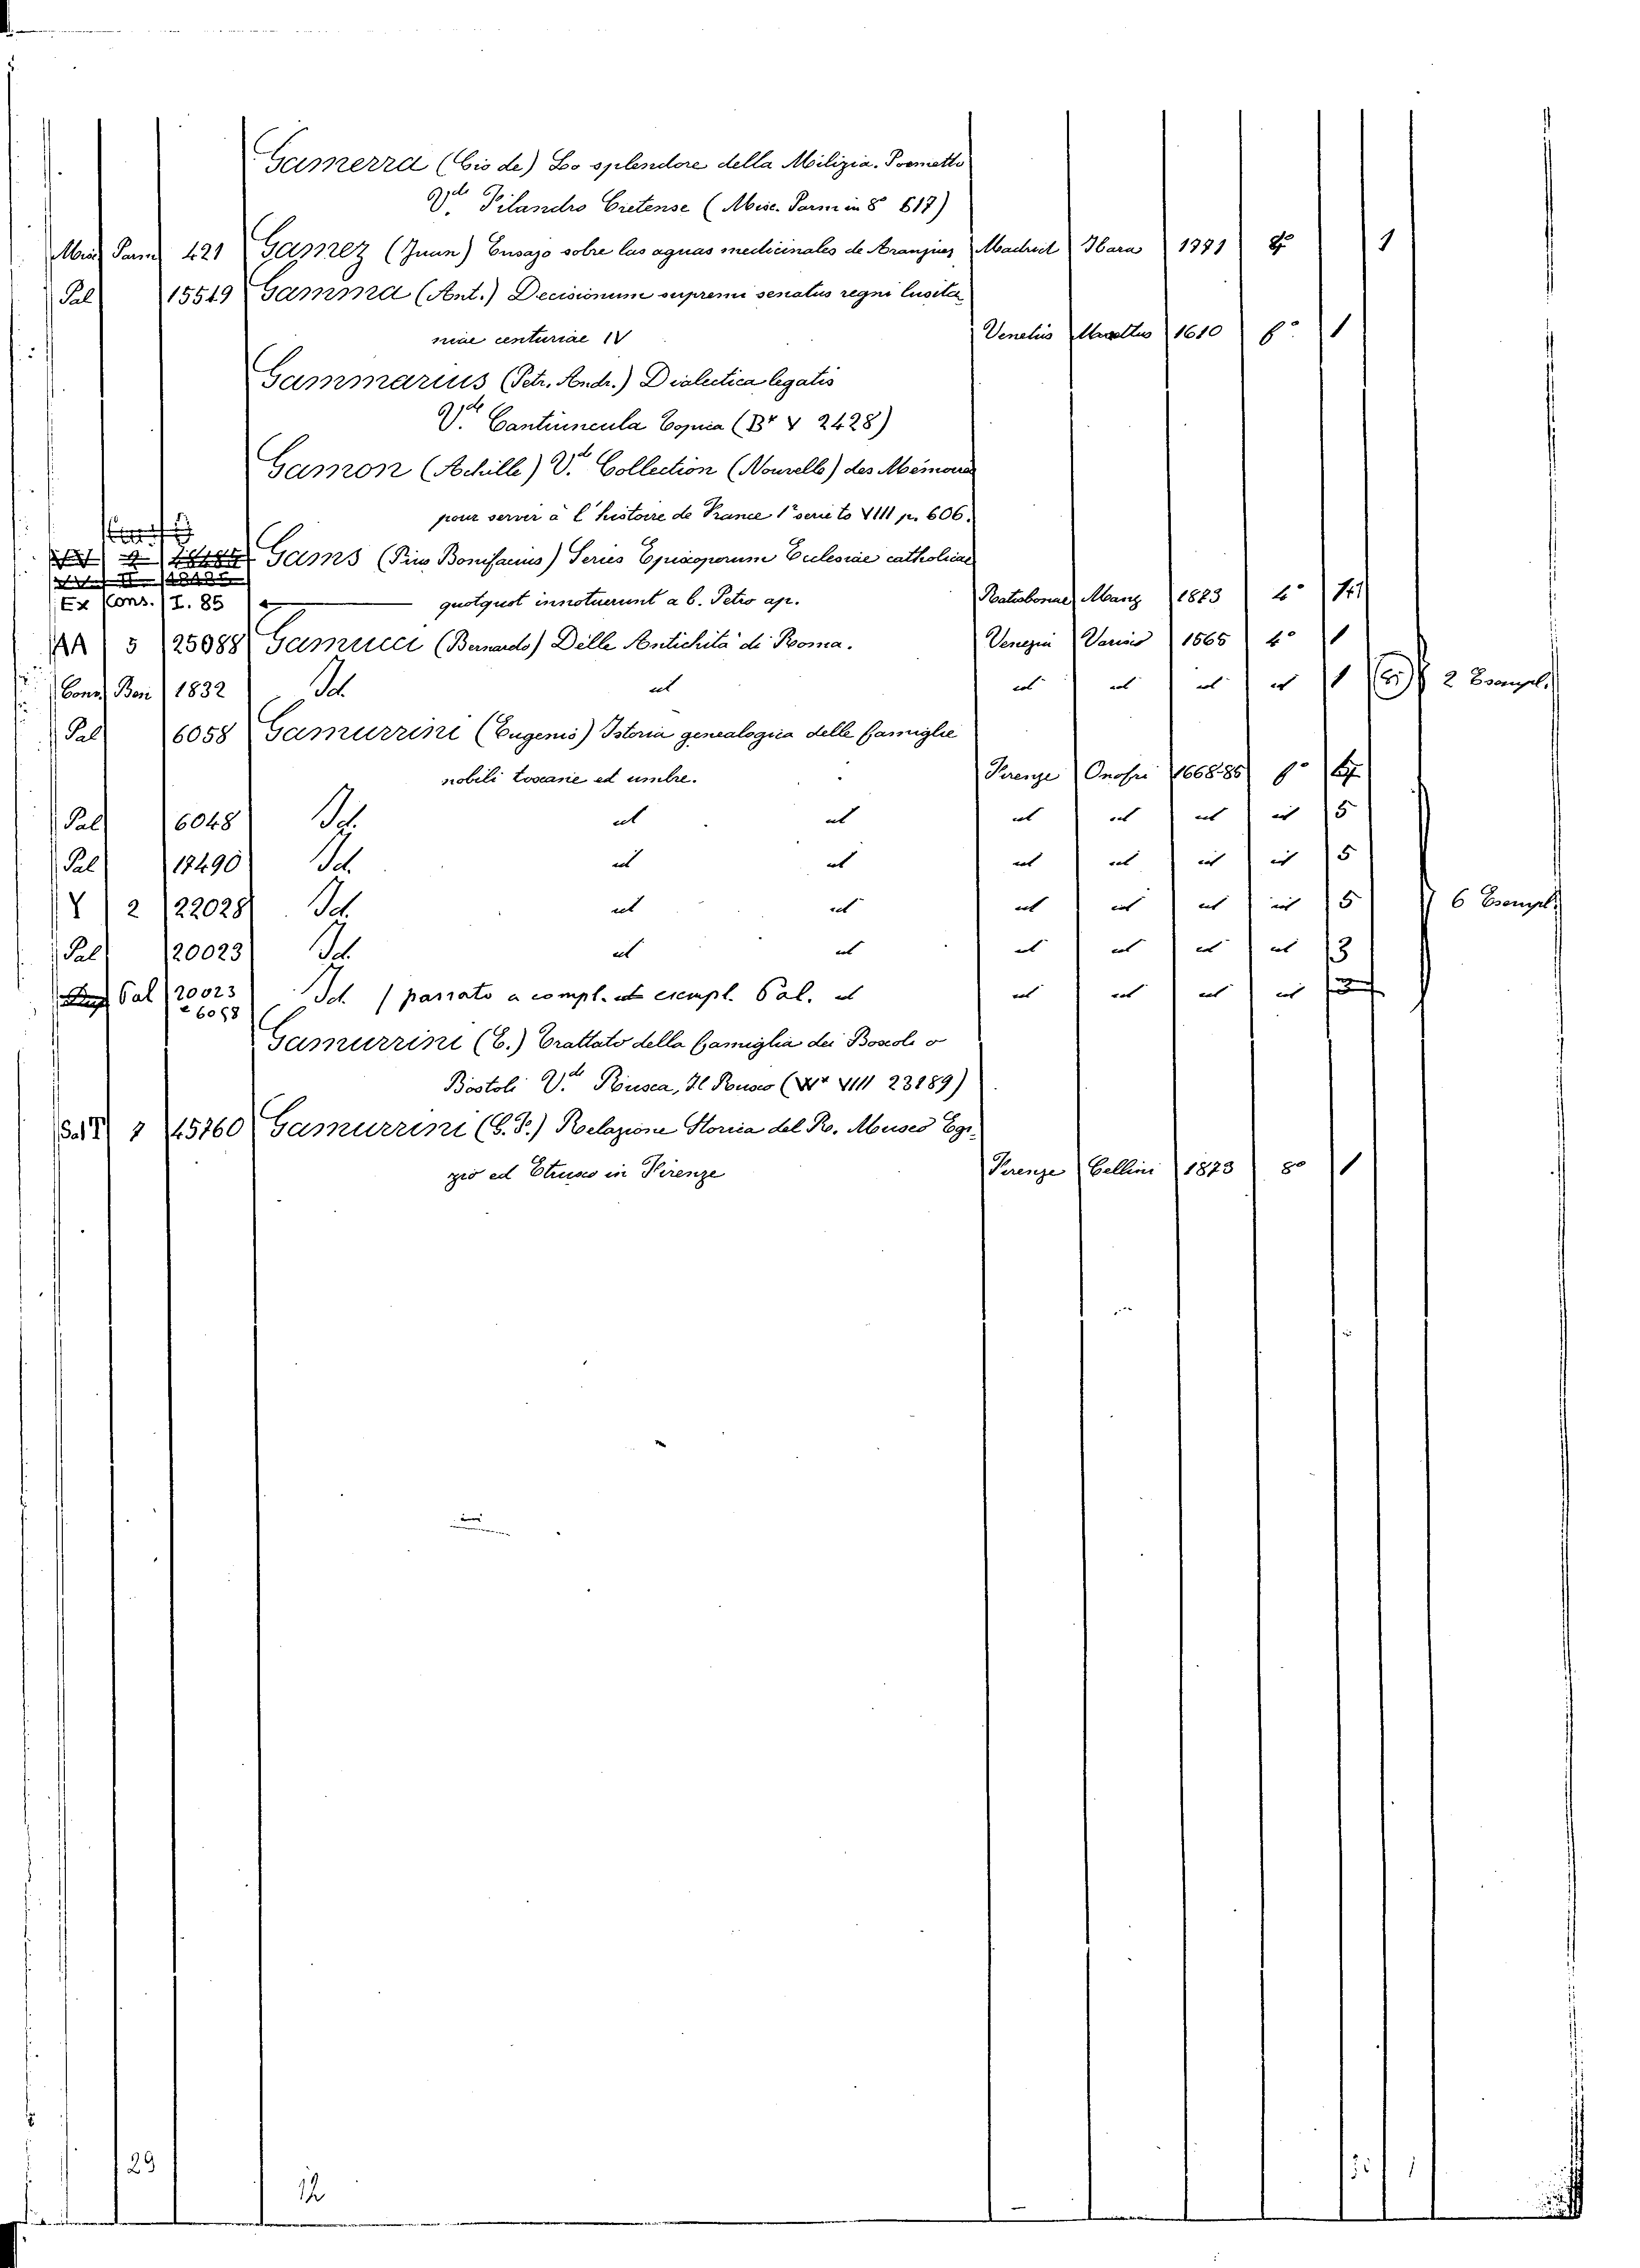 Gamerra (Gio de) Lo splendore della Milizia. Poemetto
V.de Filandro Cretense (Misc. Parm in 8° 617)
Misc Parm 421 Gamez (Juan) Ensajo sobre las aguas medicinales de Aranjuez Madrid Ibara 1771 8° 1
Pal 15519 Gamma (Ant.) Decisionum supremi senatus regni lusita
niae centuriae IV Venetiis 1610 f° 1
Gammarius (Petr. Andr.) Dialectica legatis
V.de Cantiuncula (Br V 2428)
Gamon (Achille) V.de Collection (Nouvelle) des Mémoires
pour servir à l'histoire de France 1e serie to VIII p. 606.
Gams (Pius Bonifacius) Series Episcoporum Ecclesiae catholicae
Ex Cons. I. 85 quotquot innotuerunt a b. Petro ap. Ratisbonae Manz 1873 4°
AA 5 25088 Gamucci (Bernardo) Delle Antichità di Roma. Venezia Varisco 1565 4° 1
Conv Ben 1832 Id. ut ut ut ut ut 1 2 Esempl.
Pal 6058 Gamurrini (Eugenio) Istoria genealogica delle famiglie
nobili toscane ed umbre. Firenze Onofri 1668-85 f°
Pal 6048 Id. ut ut ut ut ut ut 5
Pal 17490 Id. ut ut ut ut ut ut 5
Y 2 22028 Id. ut ut ut ut ut ut 5 6 Esempl.
Pal 20023 Id. ut ut ut ut ut ut 3
Pal 20023 Id. passato a compl. esempl. Pal. ut ut ut ut ut
e 6058
Gamurrini (E.) Trattato della famiglia dei Boscoli o
Bostoli V.de Rusca, Il Rusco (VIII 23189)
7 45760 Gamurrini (G. F.) Relazione Storica del R. Museo Egi-
zio ed Etrusco in Firenze Firenze Cellini 1873 8° 1
29
12
1